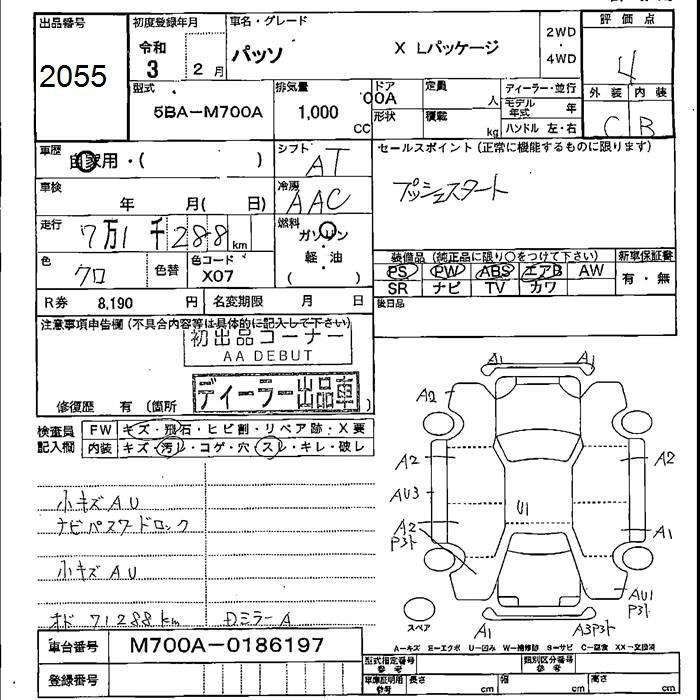 出品番号 初度登録年月 車名・グレード 2WD・4WD 評価点
2055 令和3 2月 パッソ X Lパッケージ 4
型式 排気量 ドア 定員 人 ディーラー・並行 外装 内装
5BA-M700A 1,000 CC 00A 形状 積載 kg モデル年式 年 C B
ハンドル 左・右
車歴 自家用・( ) シフト AT セールスポイント (正常に機能するものに限ります)
車検 年 月( 日) 冷房 AAC プッシュスタート
走行 7万1千288km 燃料 ガソリン 軽・油 ( )
装備品 (純正品に限り○をつけて下さい) 新車保証書
色 クロ 色替 色コード X07 PS PW ABS エアB AW 有・無
SR ナビ TV カワ
R券 8,190 円 名変期限 月 日 後日品
注意事項申告欄 (不具合内容等は具体的に記入して下さい)
初出品コーナー
AA DEBUT
ディーラー出品車
修復歴 有 (箇所 )
検査員記入欄 FW キズ・飛石・ヒビ割・リペア跡・X要
内装 キズ・汚レ・コゲ・穴・スレ・キレ・破レ
小キズ A U
ナビパスワードロック
小キズ A U
オド 71288km Dミラー A
A1 A1
A2
A2 A2
AU3 U1
A2 P3ト A1
AU1 P3ト
スペア A1 A3P3ト
A-キズ E-エクボ U-凹み W-補修跡 S-サビ C-腐食 XX-交換済
車台番号 M700A-0186197
型式指定番号 参考 類別区分番号 参考
登録番号 車庫証明用 参考 長さ cm 幅 cm 高さ cm